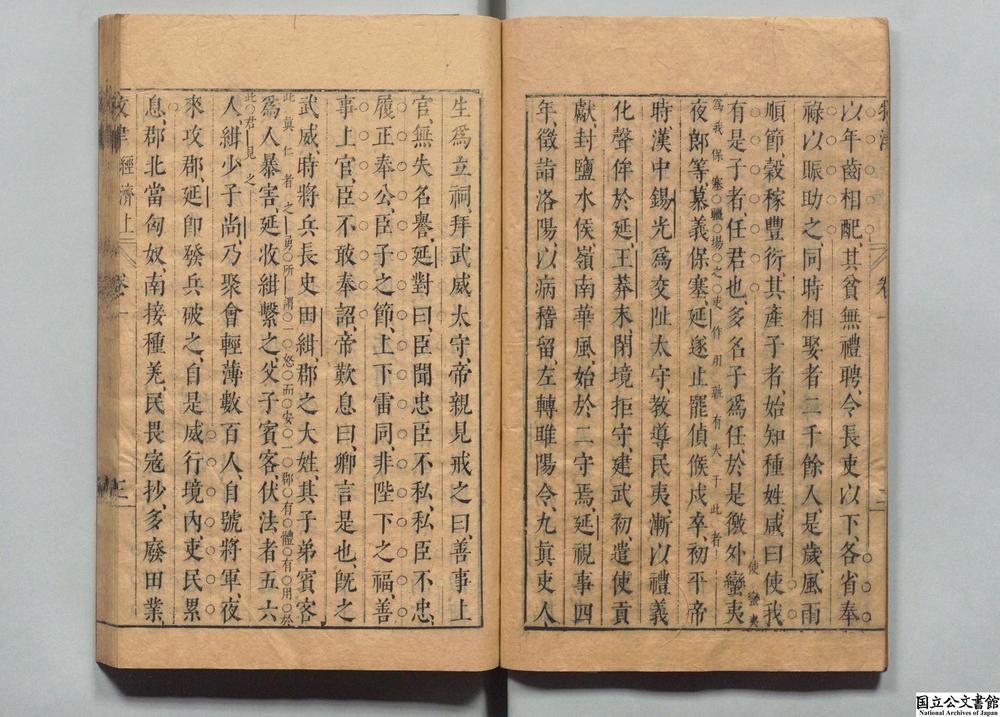 以年齒相配、其貧無禮聘、令長吏以下、各省奉
祿以賑助之、同時相娶者二千餘人、是歲、風雨
順節、穀稼豐衍、其產子者、始知種姓、咸曰、使我
有是子者、任君也、多名子爲任、於是徼外蠻夷
夜郎等慕義保塞、延遂止罷偵候戍卒、初平帝
時、漢中錫光爲交阯太守、教導民夷、漸以禮義
化聲侔於延、王莽末、閉境拒守、建武初、遣使貢
獻、封鹽水侯、嶺南華風、始於二守焉、延視事四
年、徵詣洛陽、以病稽留、左轉睢陽令、九眞吏人
生爲立祠、拜武威太守、帝親見、戒之曰、善事上
官、無失名譽、延對曰、臣聞忠臣不私、私臣不忠、
履正奉公、臣子之節、上下雷同、非陛下之福、善
事上官、臣不敢奉詔、帝歎息曰、卿言是也、旣之
武威、時將兵長史田紺、郡之大姓、其子弟賓客
爲人暴害、延收紺繫之、父子賓客伏法者五六
人、紺少子尚、乃聚會輕薄數百人、自號將軍、夜
來攻郡、延卽發兵破之、自是威行境內、吏民累
息、郡北當匈奴、南接種羌、民畏寇抄、多廢田業、
經濟上
卷一
国立公文書館
National Archives of Japan